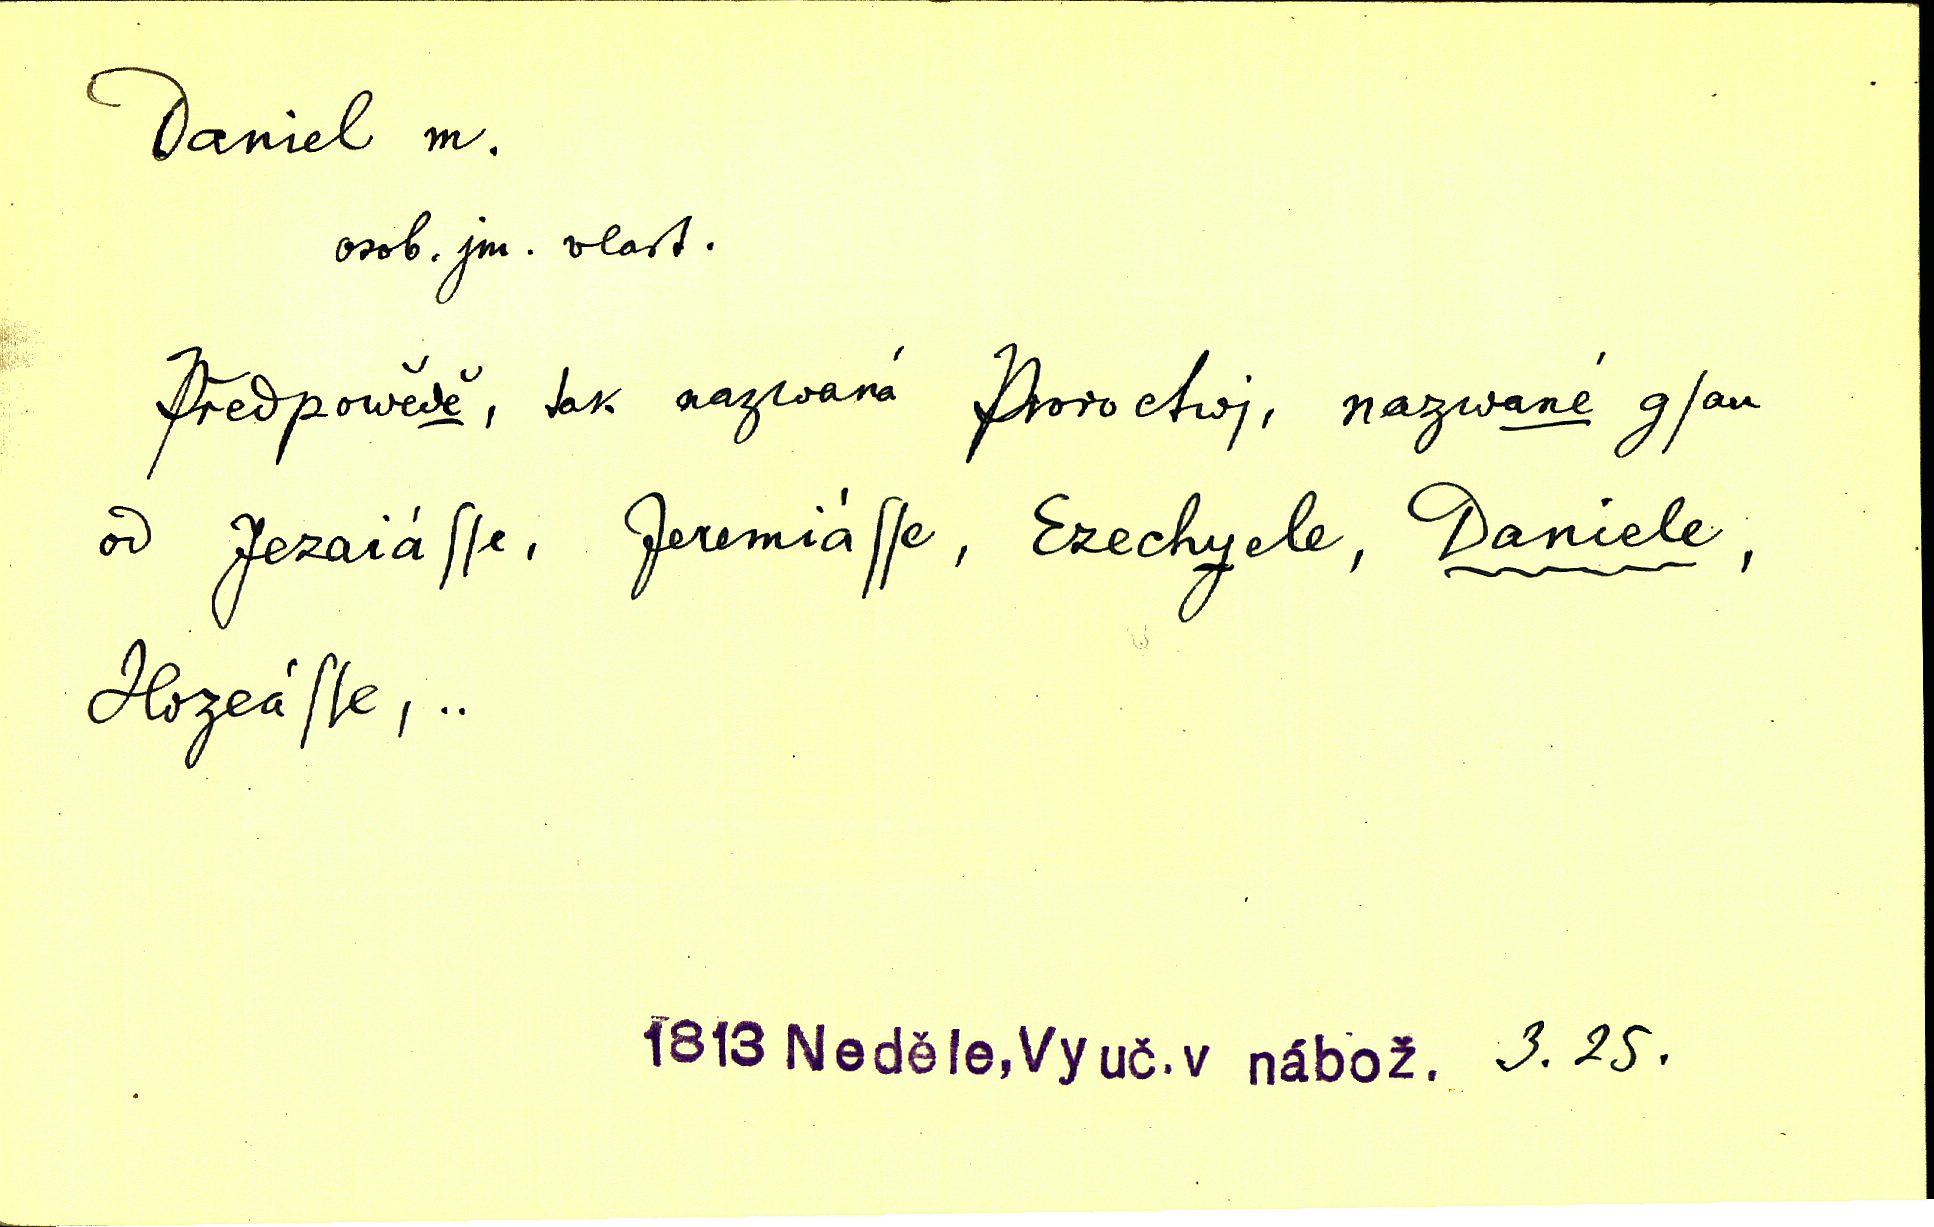 Daniel m.
osob. jm. vlast.
Předpowědě, tak nazwaná Proroctwj, nazwané gſau
od Jezaiáſſe, Jeremiáſſe, Ezechyele, Daniele,
Hozeáſſe, ..
1813 Neděle, Vyuč. v nábož. 3. 25.